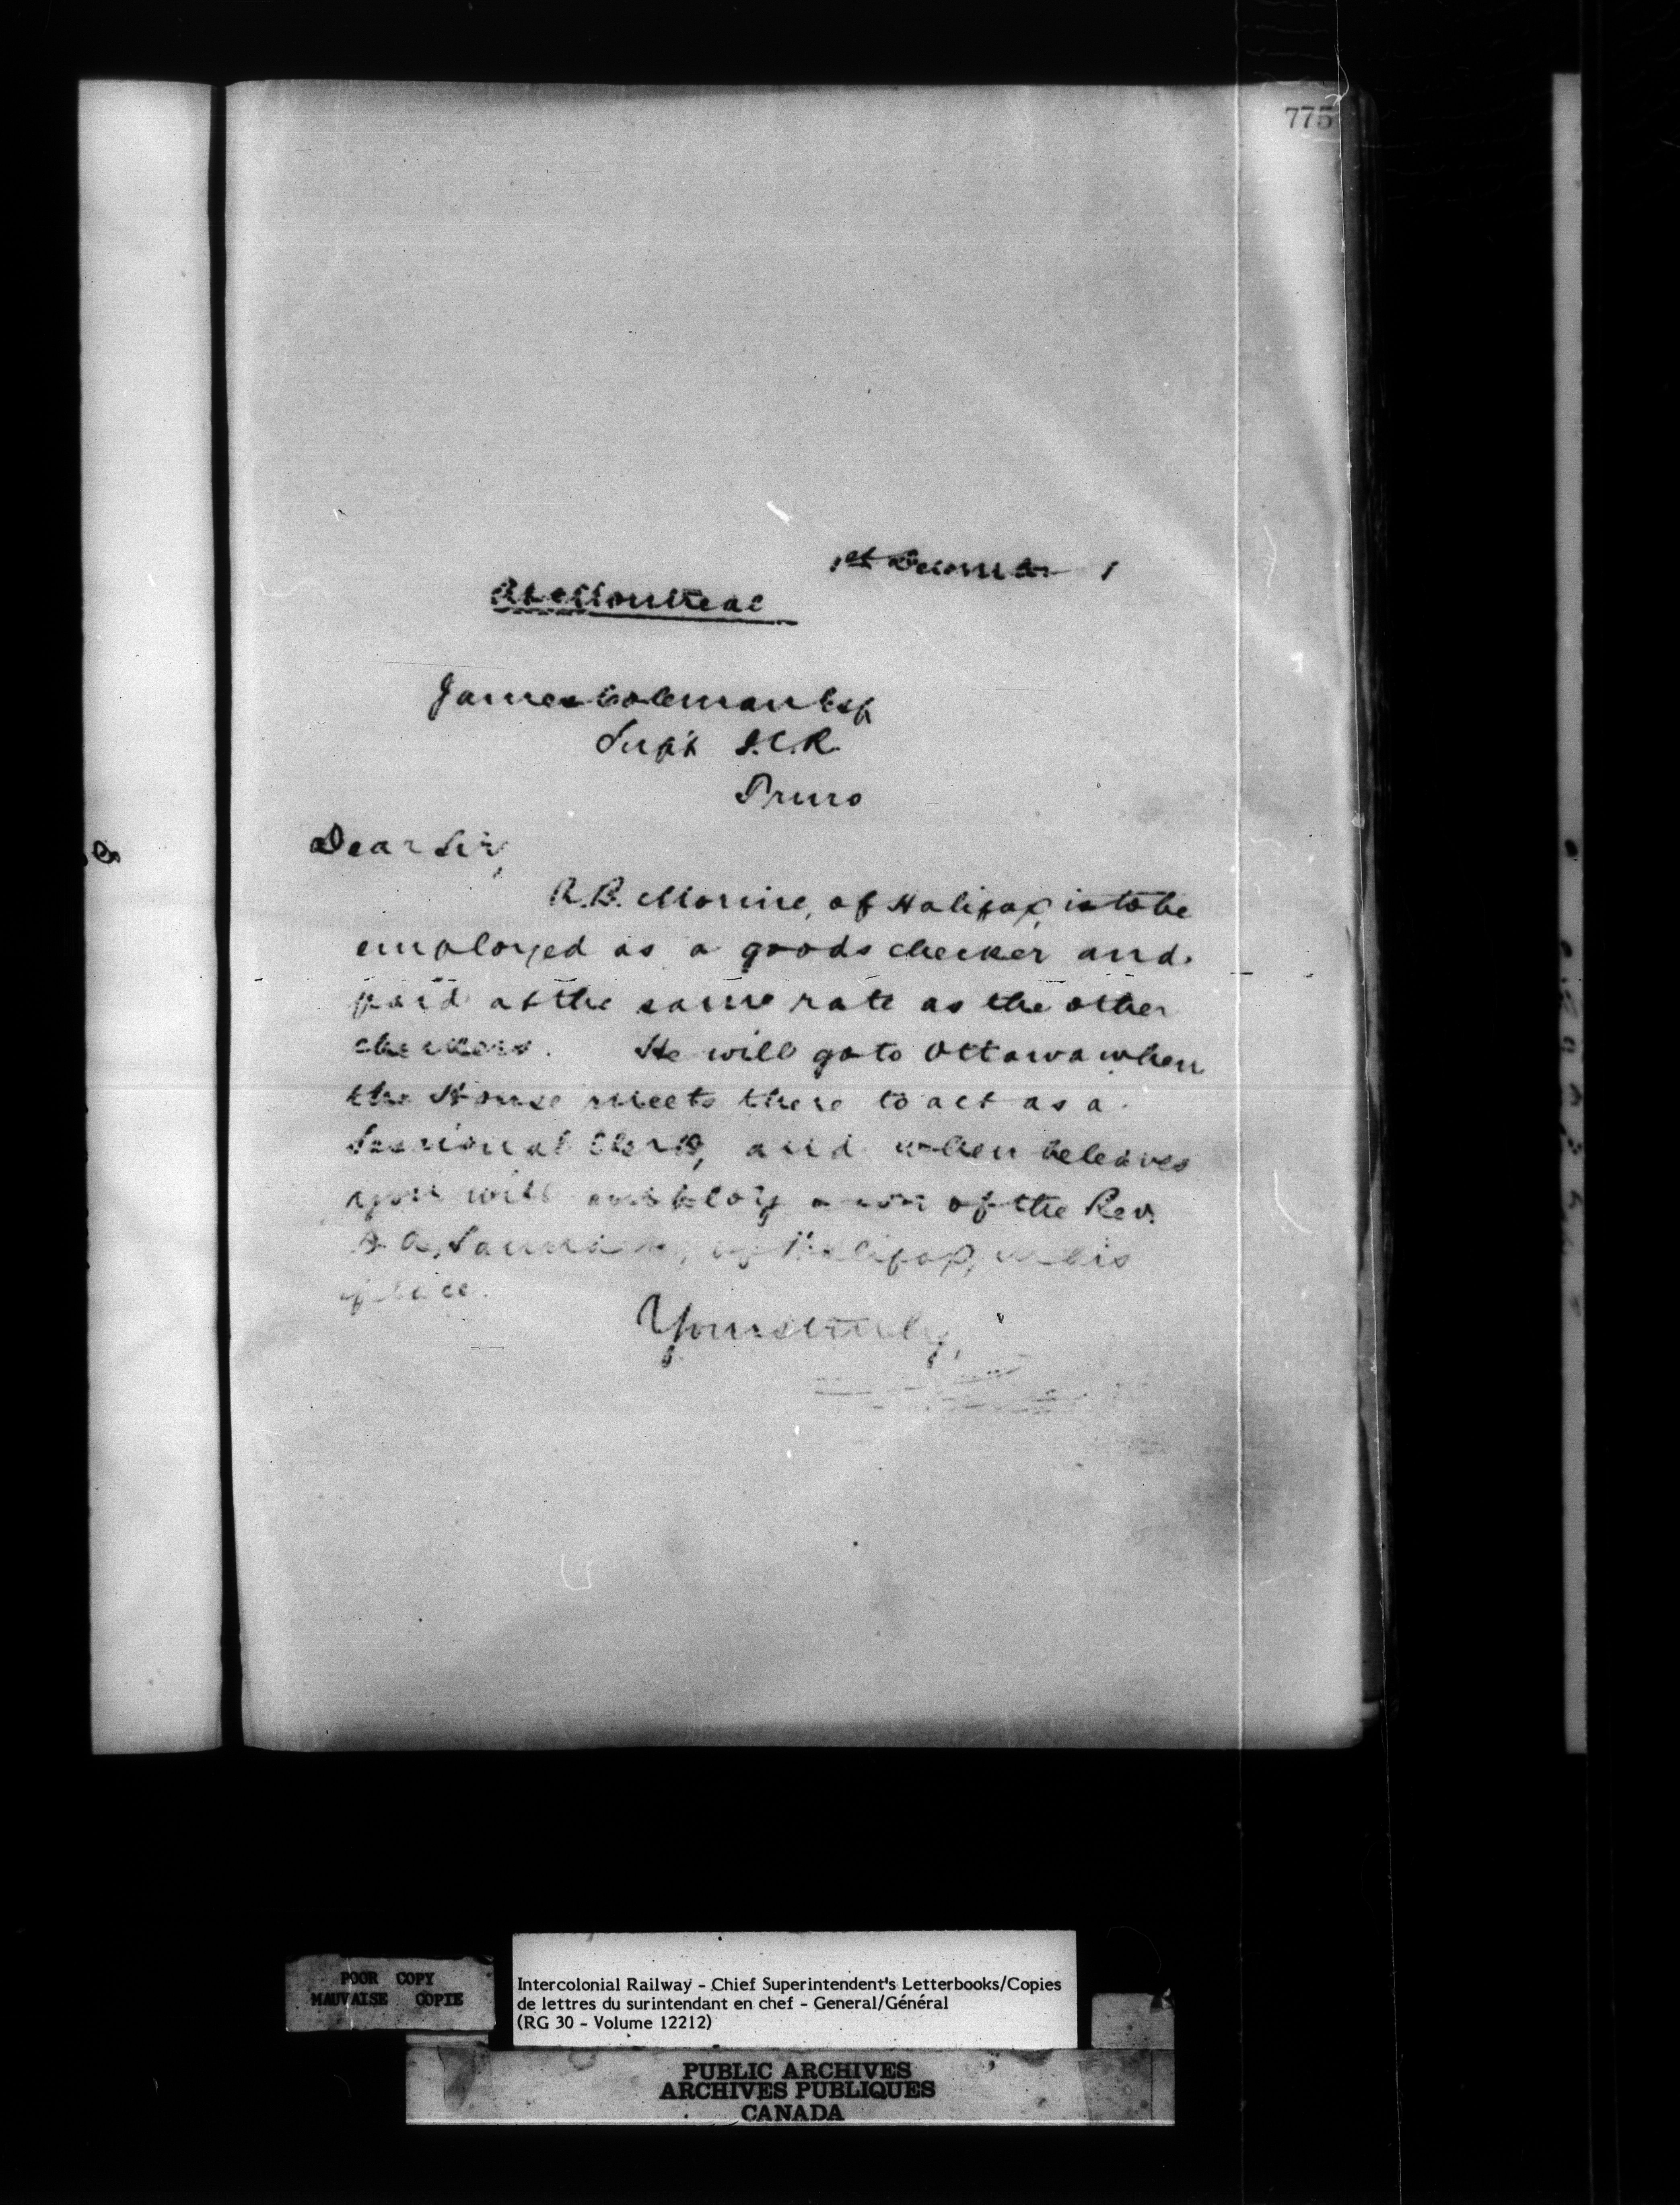 775
1st December 1
At Montreal
James Coleman Esq
Supt I.C.R.
Truro
Dear Sir,
R.B. Morine, of Halifax, is to be
employed as a goods checker and
paid at the same rate as the other
checkers. He will go to Ottawa when
the House meets there to act as a
Sessional Clerk, and when he leaves
you will employ a son of the Rev.
of Halifax, in his
place.
Yours truly,
POOR COPY
MAUVAISE COPIE
Intercolonial Railway - Chief Superintendent's Letterbooks/Copies
de lettres du surintendant en chef - General/Général
(RG 30 - Volume 12212)
PUBLIC ARCHIVES
ARCHIVES PUBLIQUES
CANADA